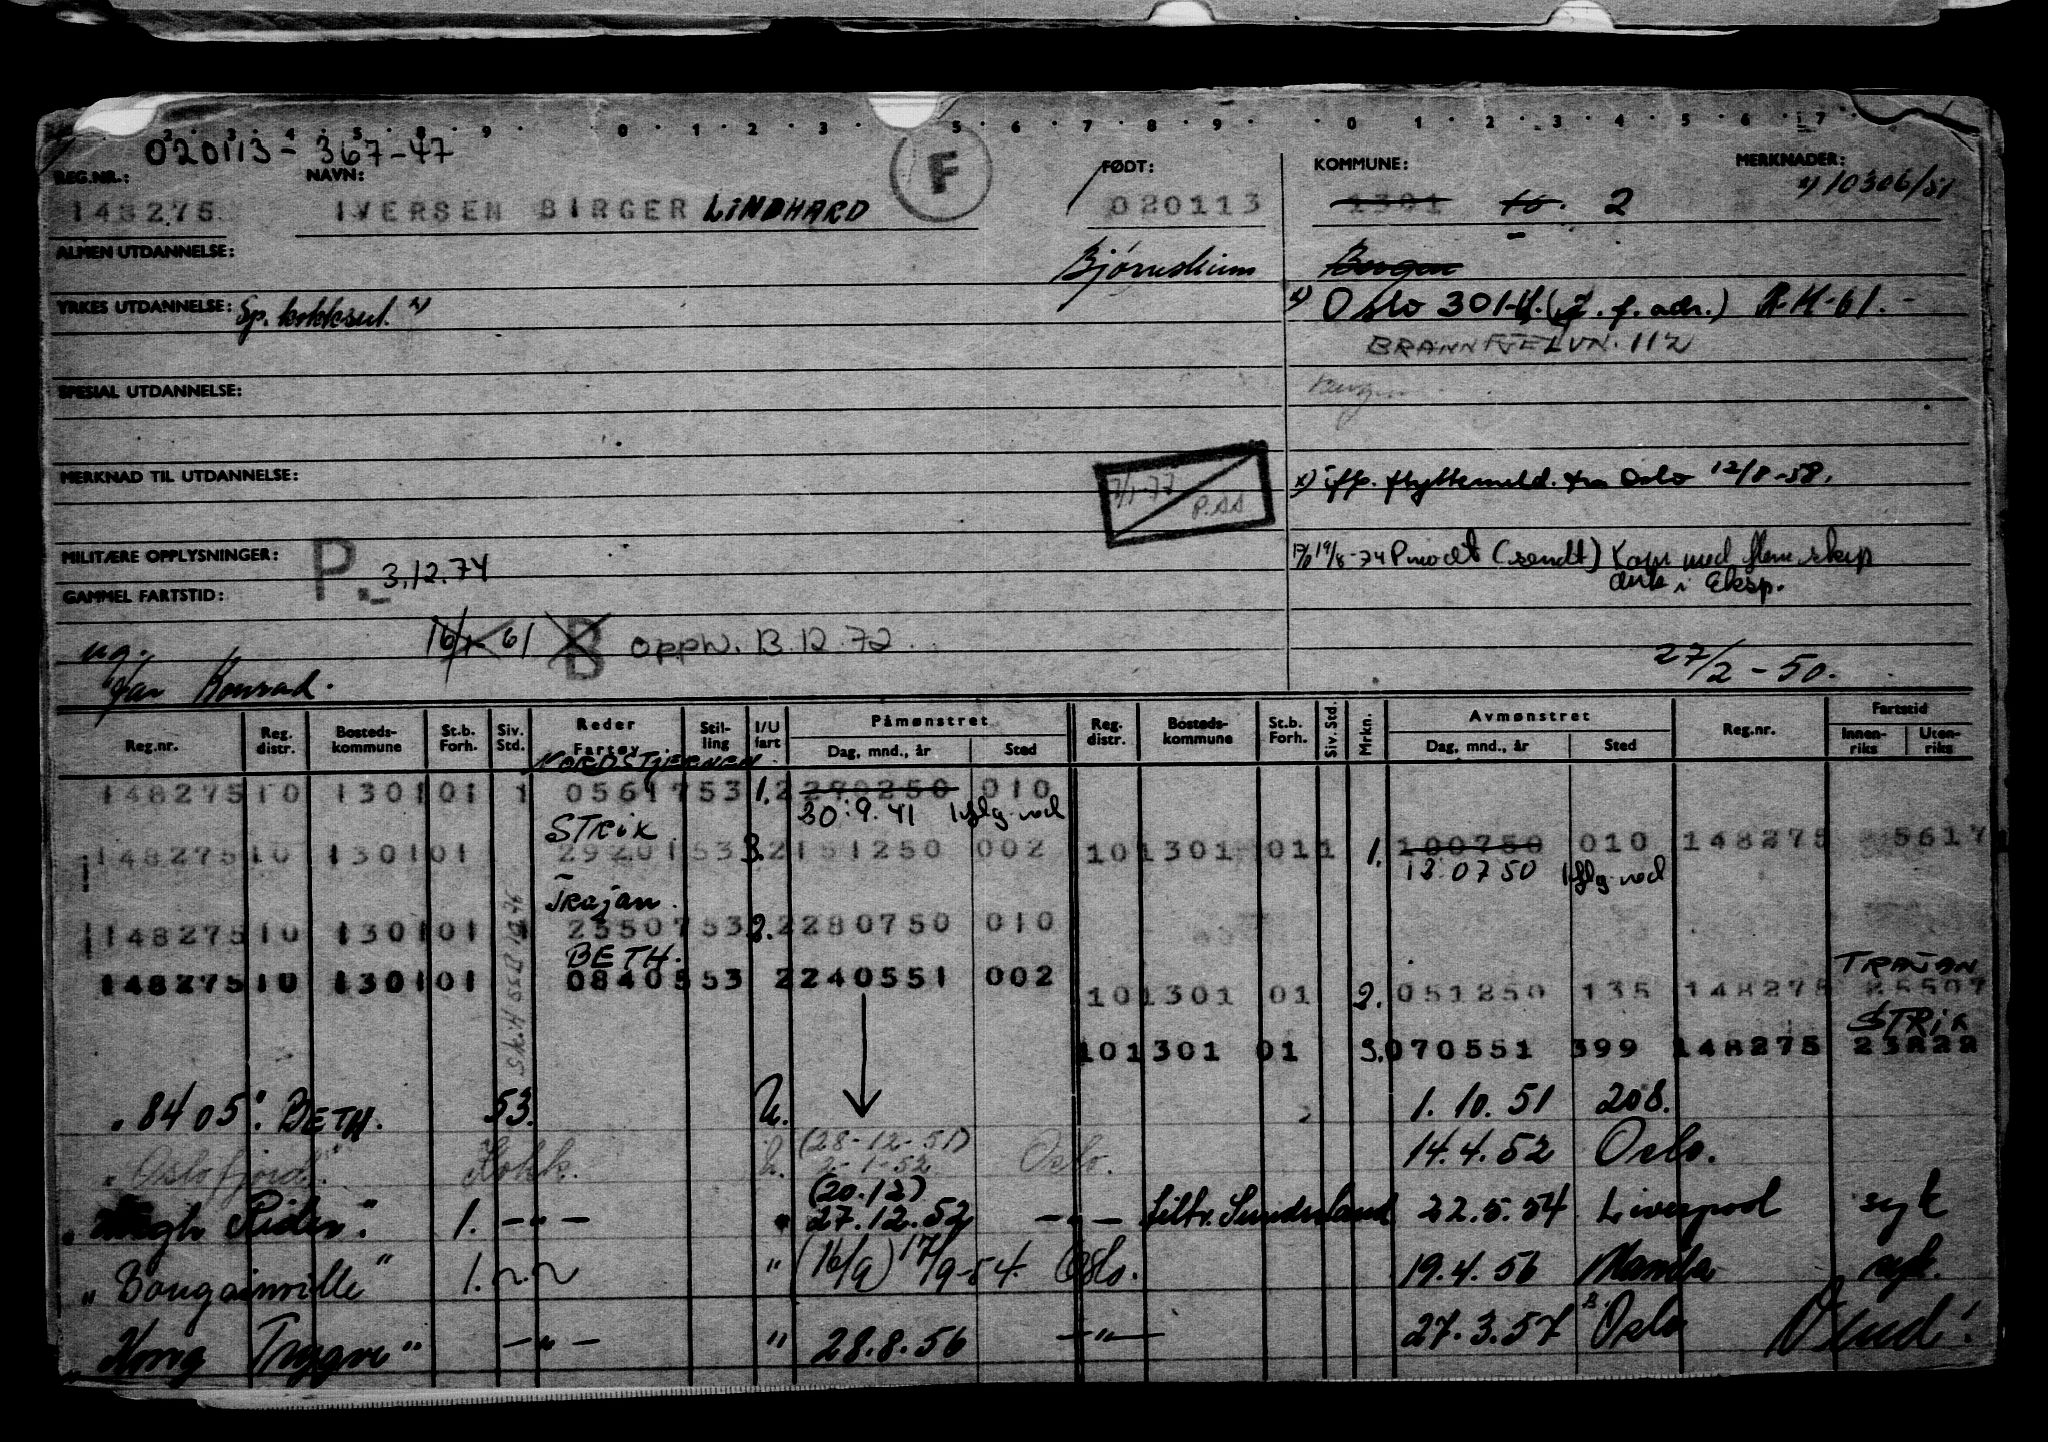 2 3 4 5 8 9 0 1 2 3 5 6 7 8 9 0 1 2 3 4 5 6 7
020113 - 367-47
REG.NR.: NAVN: F FØDT: KOMMUNE: MERKNADER:
148275 IVERSEN BIRGER LINDHARD 020113 1301 10. 2 x) 10306/51
ALMEN UTDANNELSE: Bergen
YRKES UTDANNELSE: Sp. kokksert. x) x) Oslo 301-H. (f. adr.)
BRANNFJELVN. 112
SPESIAL UTDANNELSE: Bergen
MERKNAD TIL UTDANNELSE: 77 P.AA x) iflg. flyttemeld. fra Oslo 12/8-58.
MILITÆRE OPPLYSNINGER: P. 3.12.74 19/8-74 P mødt (sendt) Kom med flere skip
GAMMEL FARTSTID: i Eksp.
ug. 16/ 61 B oppb. 13.12.72
Jan Konrad. 27/2-50.
Reg.nr. Reg. distr. Bosteds- kommune St.b. Forh. Siv. Std. Reder Fartøy Stil- ling I/U fart Påmønstret Dag, mnd., år Sted Reg. distr. Bosteds- kommune St.b. Forh. Siv. Std. Mrkn. Avmønstret Dag, mnd., år Sted Reg.nr. Fartstid Innen- riks Uten- riks
NORDSTJERNEN
148275 10 1301 01 1 05617 53 1. 2 270250 010
30.9.41 iflg. rod
STRIX
148275 10 1301 01 29201 53 3. 2 151250 002 10 1301 01 1 1. 100750 010 148275 5617
13.0750 iflg. rod
Trajan.
148275 10 1301 01 25507 53 2. 2 280750 010
BETH.
148275 10 1301 01 08405 53 2 240551 002 TRAJAN
10 1301 01 2. 051250 135 148275 25507
STRIX
10 1301 01 3. 070551 399 148275 23822
"8405". BETH. 53. U. 1.10.51 208.
"Oslofjord". Kokk. U. (28-12-51) 2-1-52 Oslo. 14.4.52 Oslo.
(20.12)
1. -"- " 27.12.52 -"- 22.5.54 Liverpool syk
"Bougainville" 1. " (16/9) 17/9-54. Oslo. 19.4.56 Manila syk.
"Kong Trygve" -"- " 28.8.56 -"- 27.3.57 Oslo